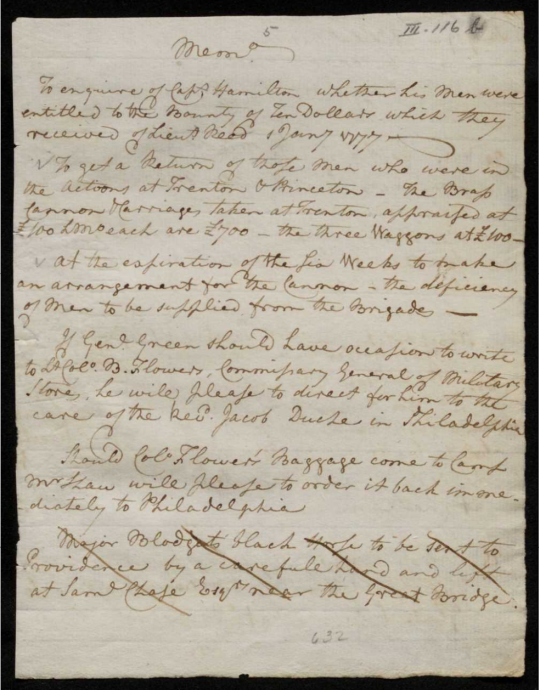 III.116 b
5
Memo.
To enquire of Capt. Hamilton whether his Men were
entitled to the Bounty of Ten Dollars which they
received of Lieut Reed 1 Jany 1777 —
✓ To get a Return of those Men who were in
the Actions at Trenton & Princeton – The Brass
Cannon & Carriages taken at Trenton, appraised at
£100 LMo each are £700 – the three Waggons at £100 –
✓ at the expiration of the Six Weeks to make
an arrangement for the Cannon – the deficiency
of Men to be supplied from the Brigades —
If Genl. Green should have occasion to write
to Lt. Colo. B. Flowers, Commissary General of Military
Stores, he will please to direct for him to the
care of the Revd. Jacob Duche in Philadelphia
Should Colo. Flower's Baggage come to Camp
Mr Shaw will please to order it back imme-
-diately to Philadelphia
Major Blodgets black Horse to be sent to
Providence by a carefull hand and left
at Saml. Chase Esqr. near the Great Bridge.
632